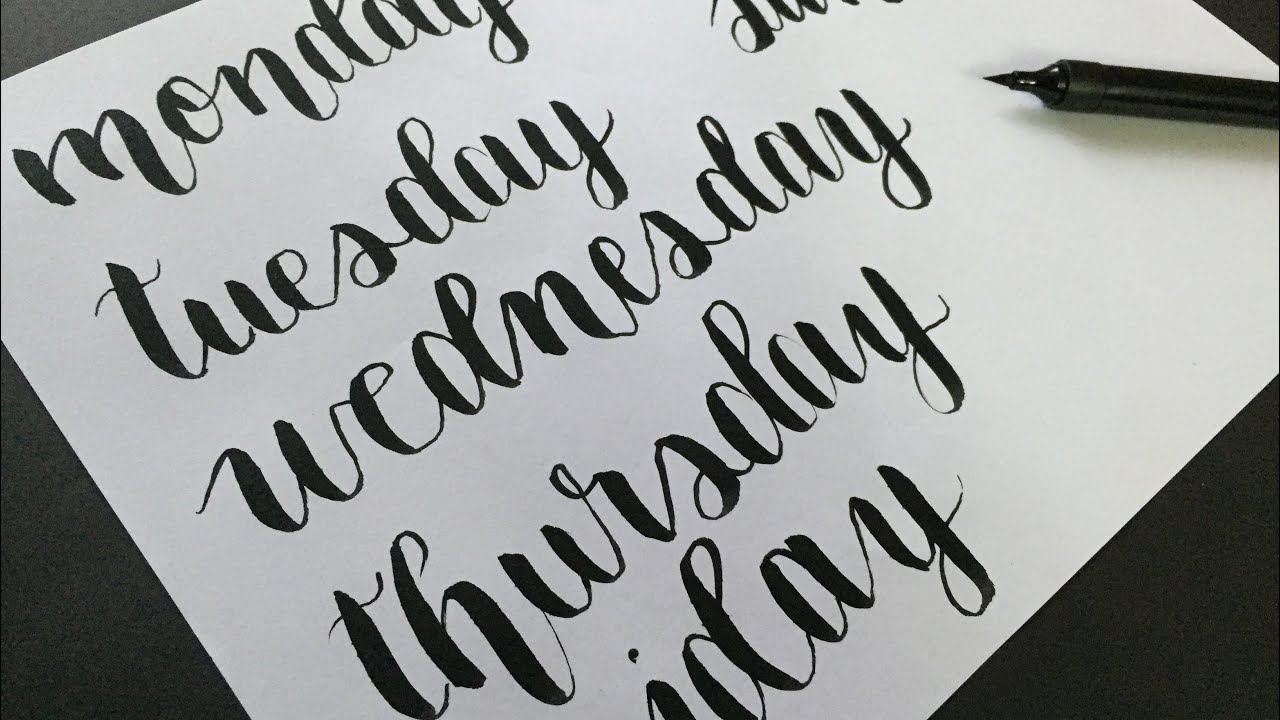 monday
tuesday
wednesday
thursday